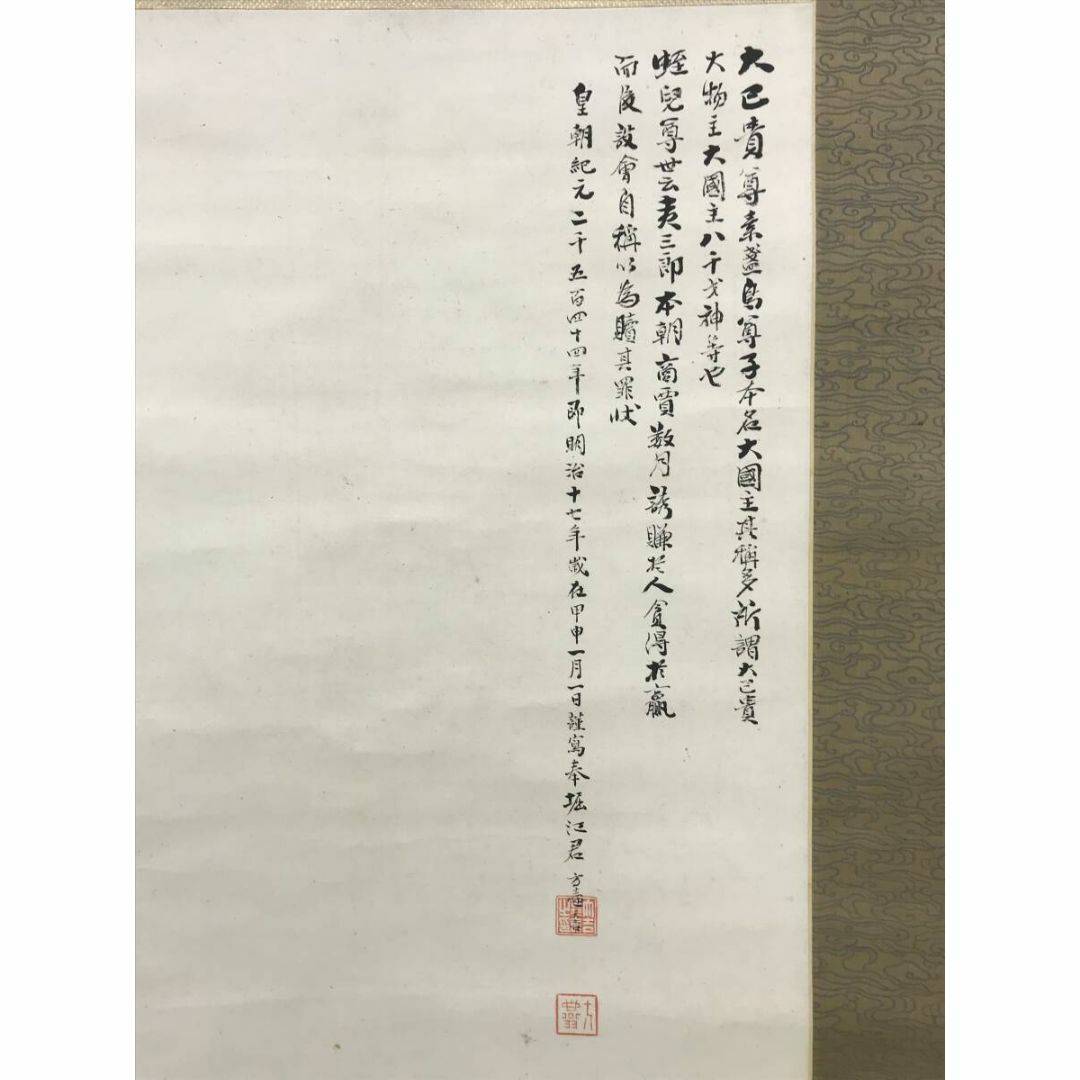 大己貴尊素盞烏尊子本名大國主其稱多所謂大己貴
大物主大國主八千戈神等也
蛭兒尊世云夷三郎本朝商賈数月誘賺於人貪得於贏
而後設會自稱以為贖其罪状
皇朝紀元二千五百四十四年即明治十七年歳在甲申一月一日謹寫奉堀江君